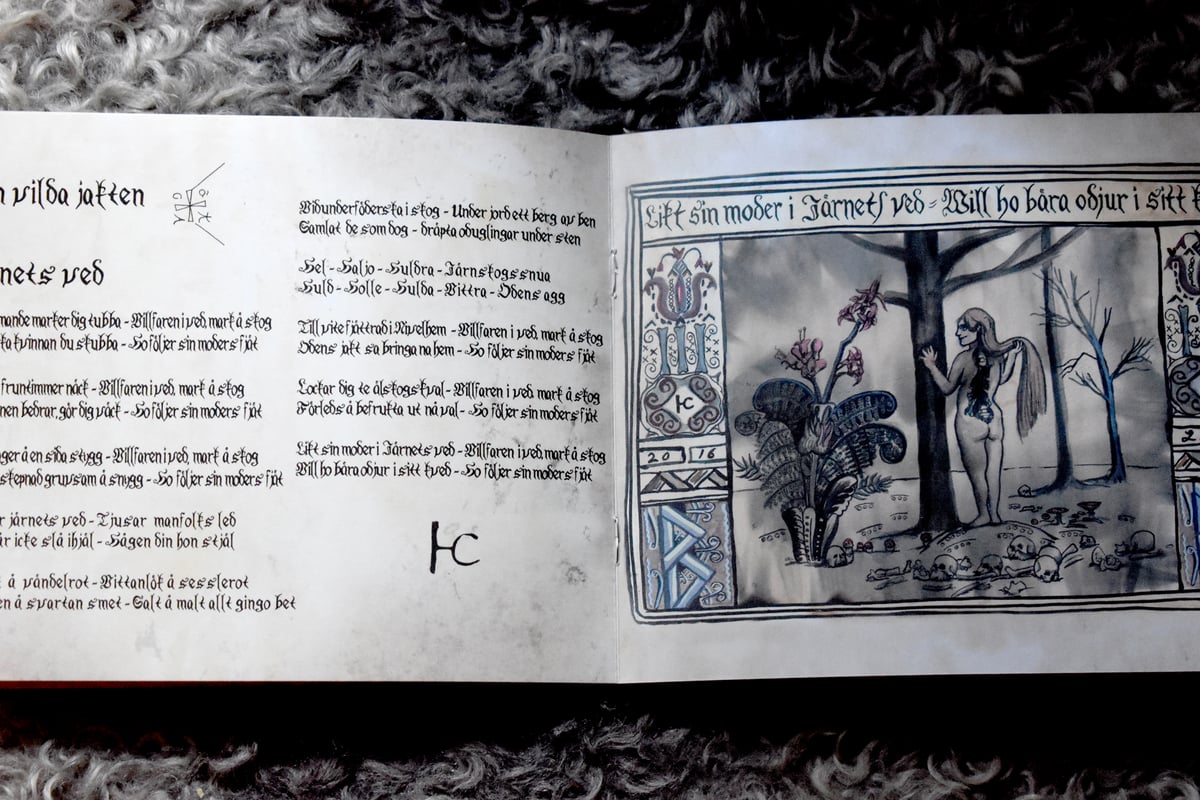 n vilda jakten
nets ved
mande marker dig tubba - Villfaren i ved, mark å skog
ta kvinnan du skubba - Ho följer sin moders fjät
fruntimmer näck - Villfaren i ved, mark å skog
nen bedrar, gör dig väck - Ho följer sin moders fjät
ger å en sida stygg - Villfaren i ved, mark å skog
skepnad gruvsam å snygg - Ho följer sin moders fjät
r järnets ved - Tjusar manfolks led
är icke slå ihjäl - Hågen din hon stjäl
å vändelrot - Vittanlök å sesslerot
en å svartan smet - Galt å malt allt gingo bet
Vidunderföderska i skog - Under jord ett berg av ben
Samlat de som dog - dräpta oduglingar under sten
Hel - Haljo - Huldra - Järnskogssnua
Huld - Holle - Hulda - Vittra - Odens agg
Till vite fjättrad i Nivelhem - Villfaren i ved, mark å skog
Odens jakt sa bringa na hem - Ho följer sin moders fjät
Lockar dig te älskogskval - Villfaren i ved, mark å skog
Förleds å befrukta ut nå val - Ho följer sin moders fjät
Likt sin moder i Järnets ved - Villfaren i ved, mark å skog
Vill ho bära odjur i sitt kved - Ho följer sin moders fjät
HC
Likt sin moder i Järnets ved - Will ho bära odjur i sitt k
HC
20 16
2